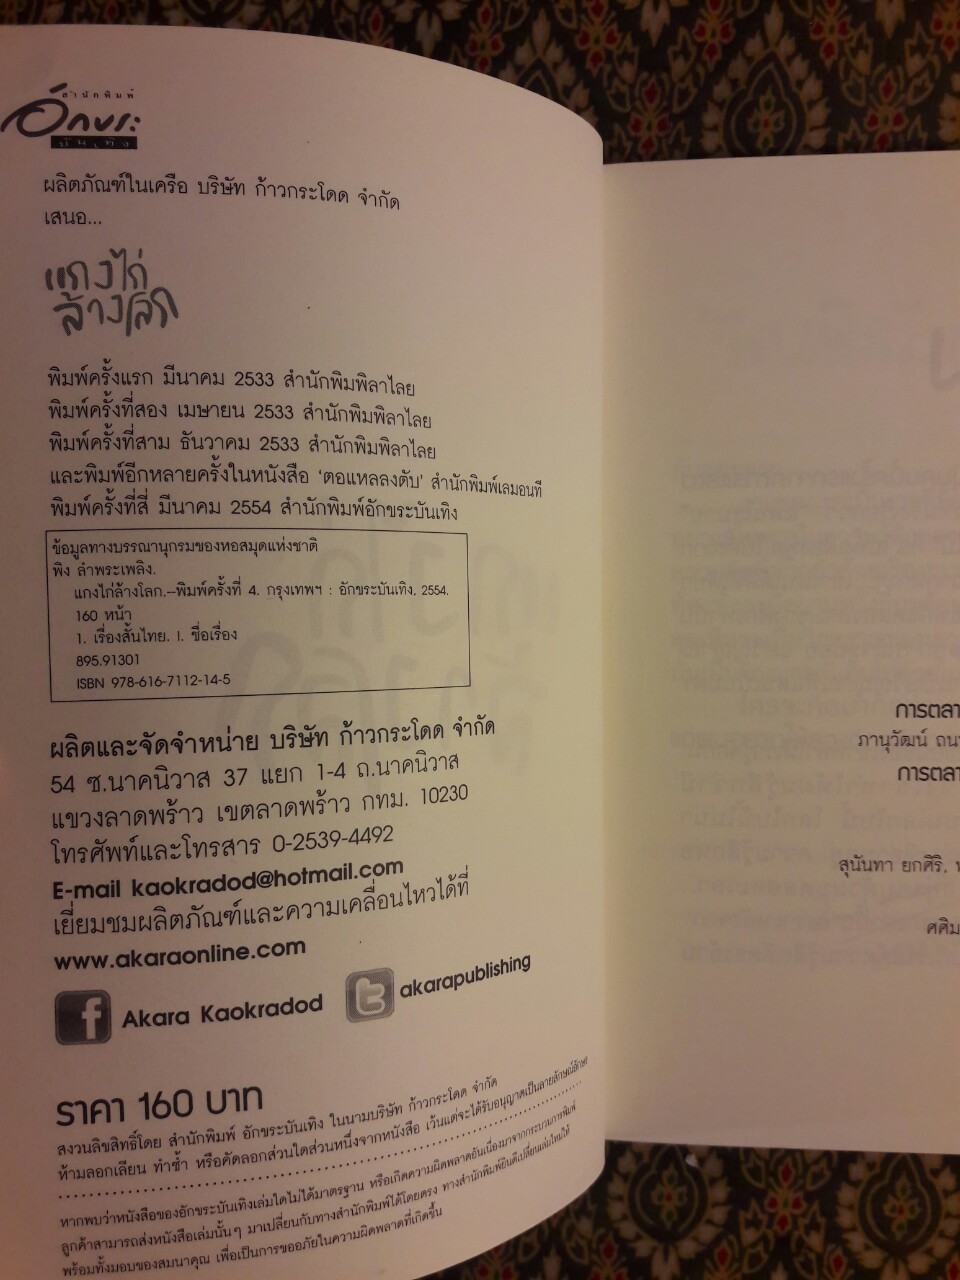 สำนักพิมพ์
อักขระ
บันเทิง
ผลิตภัณฑ์ในเครือ บริษัท ก้าวกระโดด จำกัด
เสนอ...
แกงไก่
ล้างโลก
พิมพ์ครั้งแรก มีนาคม 2533 สำนักพิมพิลาไลย
พิมพ์ครั้งที่สอง เมษายน 2533 สำนักพิมพิลาไลย
พิมพ์ครั้งที่สาม ธันวาคม 2533 สำนักพิมพิลาไลย
และพิมพ์อีกหลายครั้งในหนังสือ ‘ตอแหลลงตับ’ สำนักพิมพ์เลมอนที
พิมพ์ครั้งที่สี่ มีนาคม 2554 สำนักพิมพ์อักขระบันเทิง
ข้อมูลทางบรรณานุกรมของหอสมุดแห่งชาติ
พิง ลำพระเพลิง.
แกงไก่ล้างโลก.--พิมพ์ครั้งที่ 4. กรุงเทพฯ : อักขระบันเทิง, 2554.
160 หน้า
1. เรื่องสั้นไทย. I. ชื่อเรื่อง
895.91301
ISBN 978-616-7112-14-5
ผลิตและจัดจำหน่าย บริษัท ก้าวกระโดด จำกัด
54 ซ.นาคนิวาส 37 แยก 1-4 ถ.นาคนิวาส
แขวงลาดพร้าว เขตลาดพร้าว กทม. 10230
โทรศัพท์และโทรสาร 0-2539-4492
E-mail kaokradod@hotmail.com
เยี่ยมชมผลิตภัณฑ์และความเคลื่อนไหวได้ที่
www.akaraonline.com
f Akara Kaokradod t akarapublishing
ราคา 160 บาท
สงวนลิขสิทธิ์โดย สำนักพิมพ์ อักขระบันเทิง ในนามบริษัท ก้าวกระโดด จำกัด
ห้ามลอกเลียน ทำซ้ำ หรือคัดลอกส่วนใดส่วนหนึ่งจากหนังสือ เว้นแต่จะได้รับอนุญาตเป็นลายลักษณ์อักษร
หากพบว่าหนังสือของอักขระบันเทิงเล่มใดไม่ได้มาตรฐาน หรือเกิดความผิดพลาดอันเนื่องมาจากกระบวนการพิมพ์
ลูกค้าสามารถส่งหนังสือเล่มนั้นๆ มาเปลี่ยนกับทางสำนักพิมพ์ได้โดยตรง ทางสำนักพิมพ์ยินดีเปลี่ยนเล่มใหม่ให้
พร้อมทั้งมอบของสมนาคุณ เพื่อเป็นการขออภัยในความผิดพลาดที่เกิดขึ้น
การตลา
ภานุวัฒน์ ถน
การตลา
สุนันทา ยกศิริ,
ศศิม